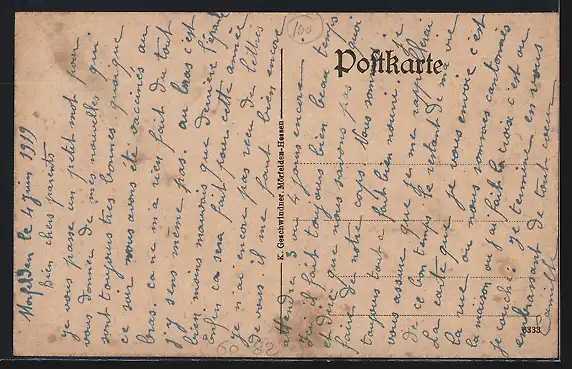 Morfelden le 4 Juin 1919
bien chers parents
je vous passe un petit mot pour
vous donner de mes nouvelles qui
sont toujours très bonnes quoique
ce soir nous avons été vaccinés au
bras. ca ne m'a rien fait du tout
j'y sens même pas. au bras c'est
bien moins mauvais que derrière l'épaule
Enfin ca sera fait pour cette année
je n'ai encore pas recu de lettres
de vous il me faut bien encore
attendre 3 ou 4 jours encore
Ici il fait toujours bien beau temps
et dire que nous savons pas quoi
faire de notre corps. Nous sommes
toujours tout a fait bien nourris. je
vous assure que je me rappellerai
de ce bon temps le restant de ma vie
La carte que je vous envoie c'est
la rue ou nous sommes cantonnés
la maison ou j'ai fait la croix c'est ou
je couche. Je termine en vous
embrassant de tout coeur
Camille
Postkarte
K. Geschwindner, Mörfelden-Hessen
8333
100